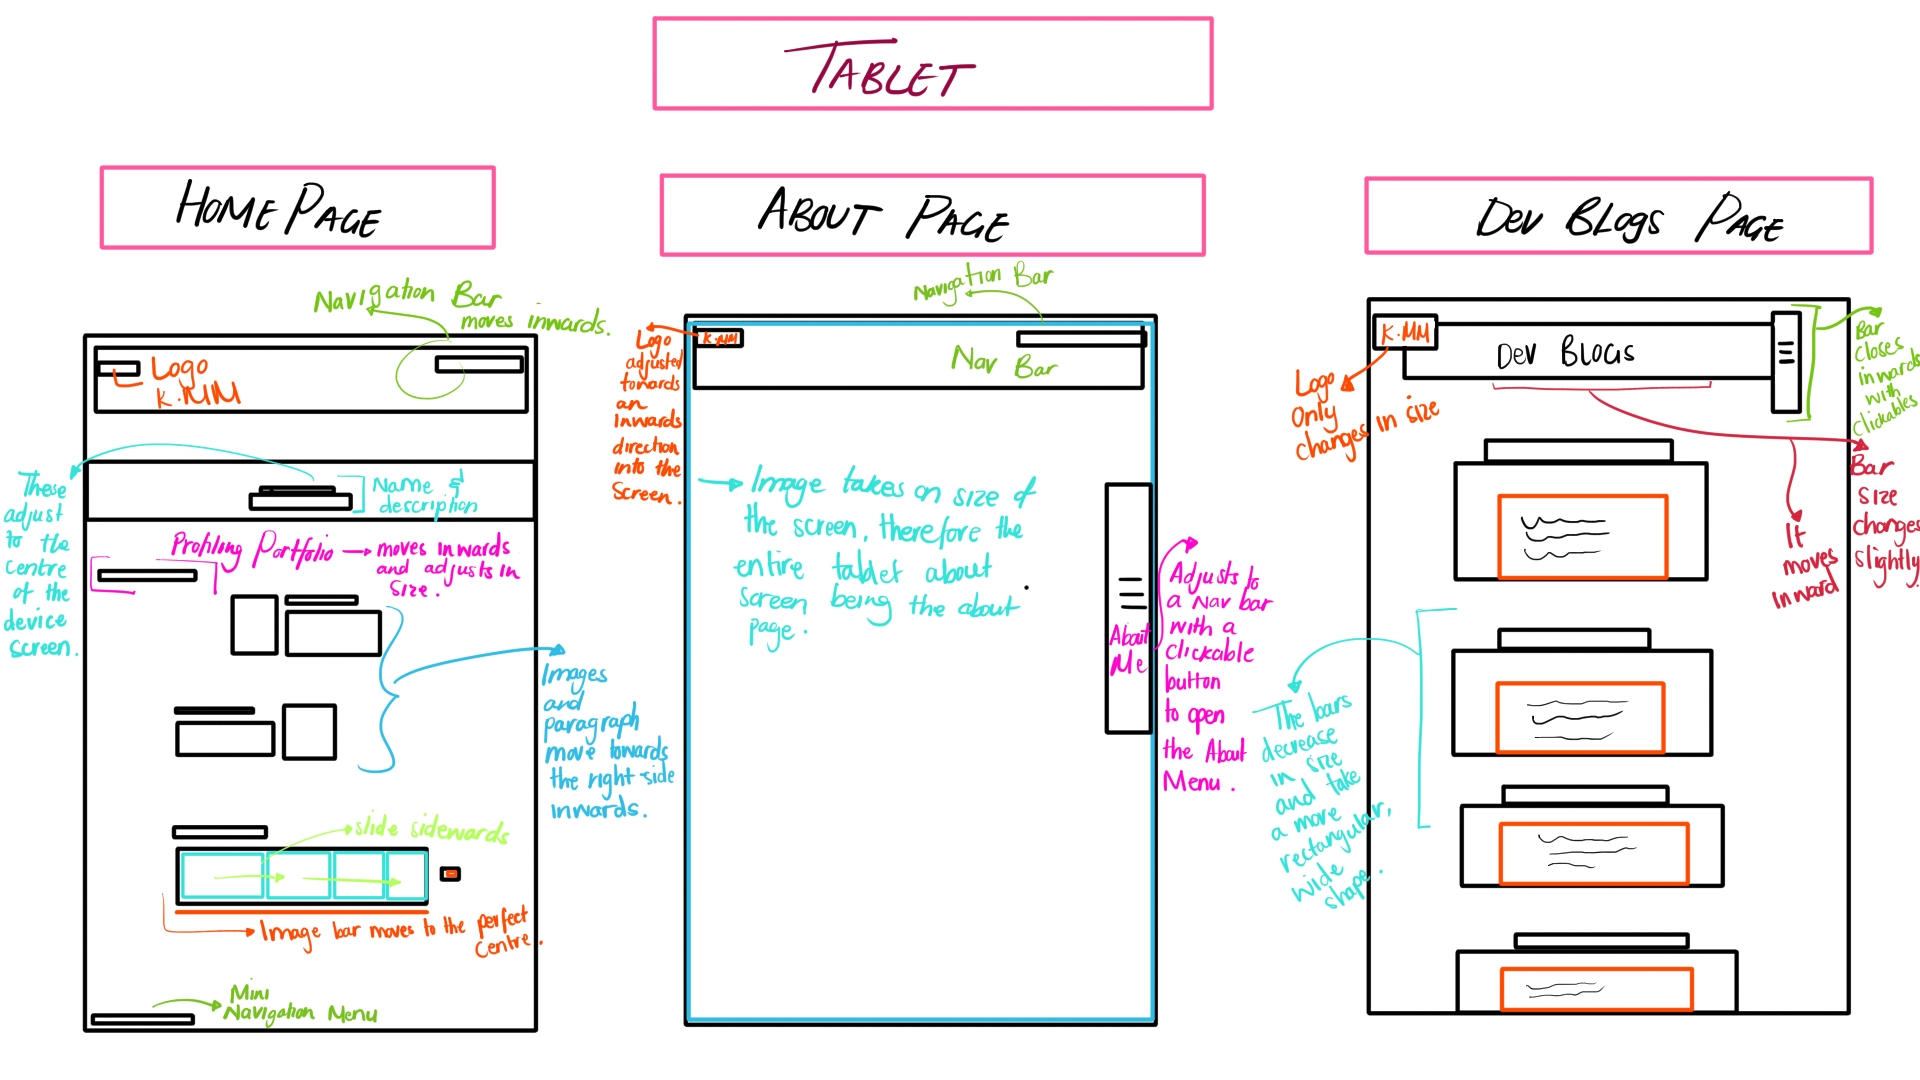 TABLET
HOME PAGE
Navigation Bar
moves inwards.
Logo
K.MM
These
adjust
to the
centre
of the
device
screen.
Name &
description
Profiling Portfolio
moves inwards
and adjusts in
size.
Images
and
paragraph
move towards
the right-side
inwards.
slide sidewards
Image bar moves to the perfect
centre.
Mini
Navigation Menu
ABOUT PAGE
Navigation Bar
K.MM
Nav Bar
Logo
adjusted
towards
an
inwards
direction
into the
screen.
Image takes on size of
the screen, therefore the
entire tablet about
screen being the about
page.
About
Me
Adjusts to
a Nav bar
with a
clickable
button
to open
the About
Menu.
DEV BLOGS PAGE
K.MM
DEV BLOGS
Bar
closes
inwards
with
clickables
Logo
only
changes in size
Bar
size
changes
slightly.
It
moves
inward
The bars
decrease
in size
and take
a more
rectangular,
wide
shape.